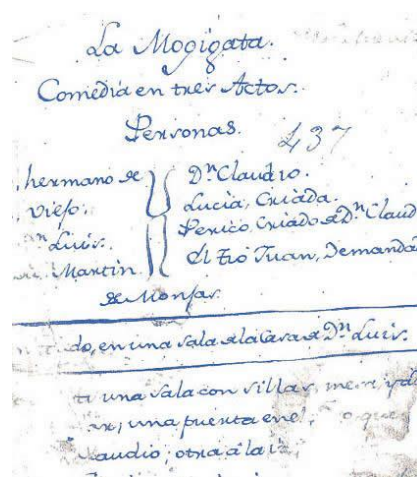 La Mogigata.
Comedia en tres Actos.
Personas.
437
hermano de
viejo.
Luis.
Martin
Dn Claudio.
Lucia, Criada.
Perico, Criado de Dn Claud
El tio Juan, Demanda
de Monjas.
do, en una sala de la Casa de Dn Luis.
una sala con sillas, mesa, y
una puerta en el
audio; otra á la